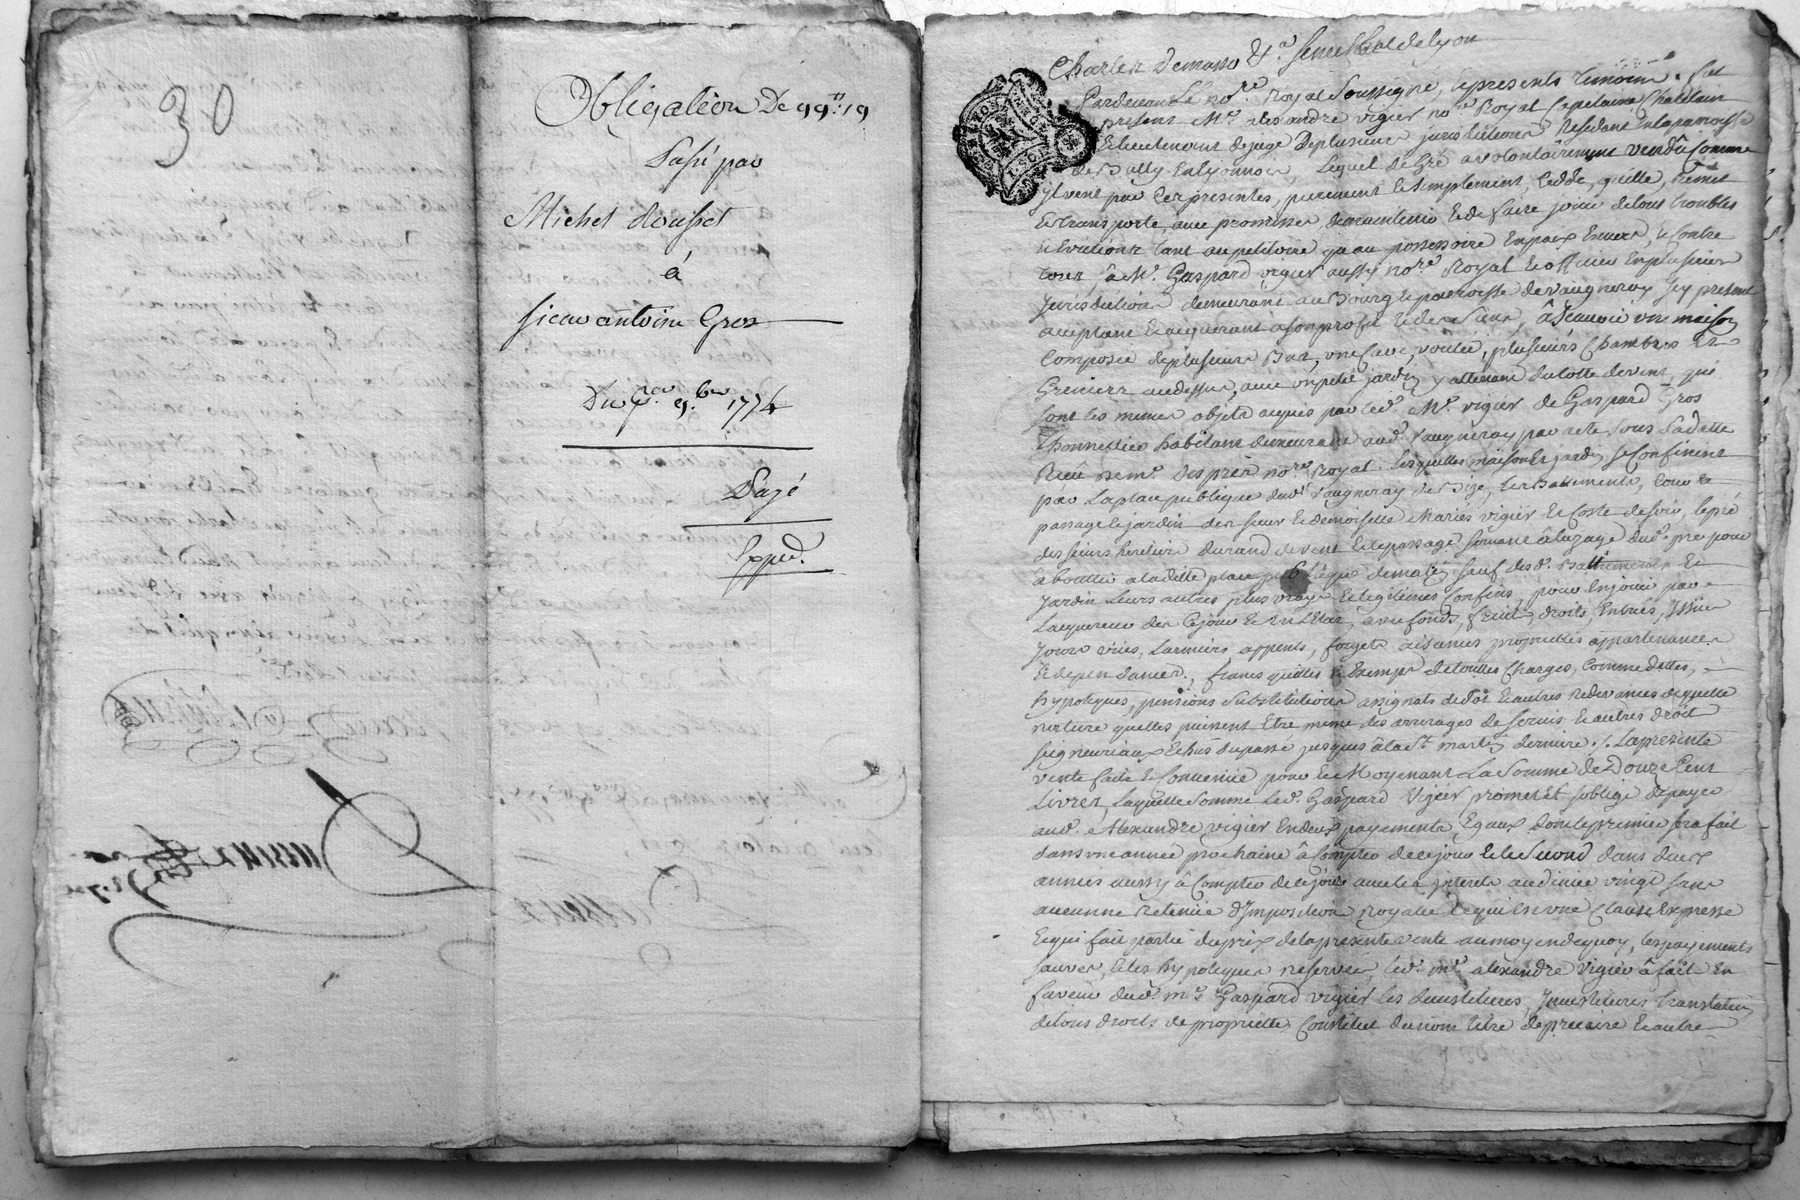 30
Obligation De 99ᵗᵗ 19
Passé par
Michel dousset
à
sieur antoine Gros
Du pᵉʳ 9.ᵇʳᵉ 1774
Payé
Expᵈ.
Charles Demasso &ᵃ Senechal de lyon
Pardevant Le noʳᵉ Royal Soussigné, & presents temoins. fut
present Mᵉ. alexandre vigier noʳᵉ Royal Capitaine Chatelain
& lieutenant de juge De plusieurs jurisdictions Residant en la paroisse
de Bully En lyonnois, Lequel de Gré a volontairement vendu Comme
Il vend par Ces presentes, purement & simplement, Cedde, quitte, remet
& transporte, avec promesse de maintenir & de faire jouir de tous troubles
& Evictions tant au petitoire qu'au possessoire En paix Envers, & Contre
tous, à Mᵉ. Gaspard vigier aussy noʳᵉ Royal & officier En plusieurs
Jurisdictions demeurant au Bourg & paroisse de vaugneray Icy present
acceptant & acquerant a son profit & des siens, à Scavoir une maison
Composée de plusieurs Bas, une Cave voutée, plusieurs Chambres &
Greniers au dessus, avec un petit jardin y attenant du cotté de vent, qui
sont les memes objets acquis par led. Mᵉ. vigier de Gaspard Gros
Thonnellier habitant demeurant aud. vaugneray par acte sous Sa datte
Reçû de mᵉ. Desprer noʳᵉ Royal. lesquelles maison & jardin se Confinent
par La place publique dud. vaugneray de Bize, les Batiments, Cour &
passage & jardin des sieur & demoiselle Mariés vigier & Coste de soir, le pré
des sieurs heritiers durand de vent & le passage servant à l'uzage dud. pré pour
aboutir a la ditte place publique de matin sauf desd. Battiments &
Jardin leurs autres plus vrays & legitimes Confins, pour En jouir par
L'acquereur dès Ce jour & En L'Etat, avec fonds, fruits, droits, Entrées, Issües
Jours vües, Larmiers appents, forgets aisances proprietés appartenances
& dependances, francs quittes & Exempts de touttes Charges, Comme dettes,
hypoteques, pensions Substitutions assignats de dot & autres redevances de quelle
nature quelles puissent Etre meme des arrerages de servis & autres droits
seigneuriaux Echûs du passé jusques à la Sᵗ. martin derniere ./. La presente
vente faite & Convenüe pour & Moyenant La Somme de Douze Cent
Livres, Laquelle Somme Led. Gaspard Vigier promet & soblige de payer
aud. Alexandre vigier En deux payements Egaux dont le premier sera fait
dans une année prochaine à Compter de ce jour & le Second dans deux
années aussy à Compter de ce jour avec les interets au dinier vingt sans
aucunne Retenüe d'Imposition Royalle Ce qui Est une Clause Expresse
& qui fait partie du prix de la presente vente au moyen de quoy, les payements
sauves, & les hypoteques reservées, led. mᵉ. alexandre Vigier à fait En
faveur dud. mᵉ. Gaspard vigier les demissions, Investitures translation
de tous droits de proprietté Constitut de nom titre de precaire & autre